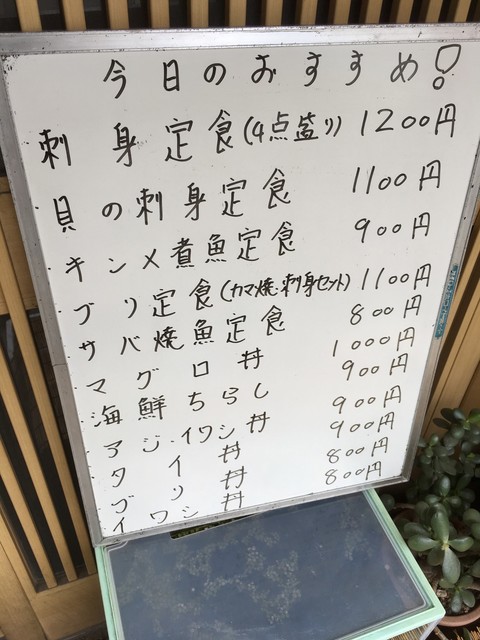 今日のおすすめ!
刺身定食(4点盛り) 1200円
貝の刺身定食 1100円
キンメ煮魚定食 900円
ブリ定食(カマ焼・刺身セット) 1100円
サバ焼魚定食 800円
マグロ丼 1000円
海鮮ちらし 900円
アジ・イワシ丼 900円
タイ丼 900円
ブリ丼 800円
イワシ丼 800円